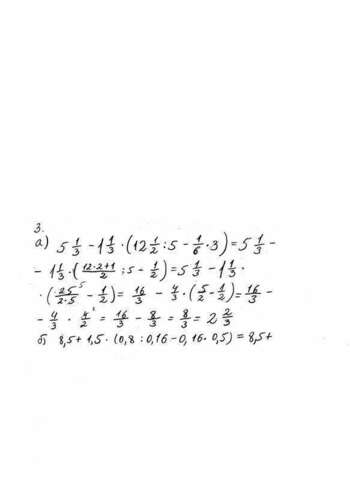 3.
а) 5 1/3 - 1 1/3 · (12 1/2 : 5 - 1/6 · 3) = 5 1/3 -
- 1 1/3 · (12·2+1/2 : 5 - 1/2) = 5 1/3 - 1 1/3 ·
· (25 5/2·5 - 1/2) = 16/3 - 4/3 · (5/2 - 1/2) = 16/3 -
- 4/3 · 4/2 = 16/3 - 8/3 = 8/3 = 2 2/3
б) 8,5 + 1,5 · (0,8 : 0,16 - 0,16 · 0,5) = 8,5 +